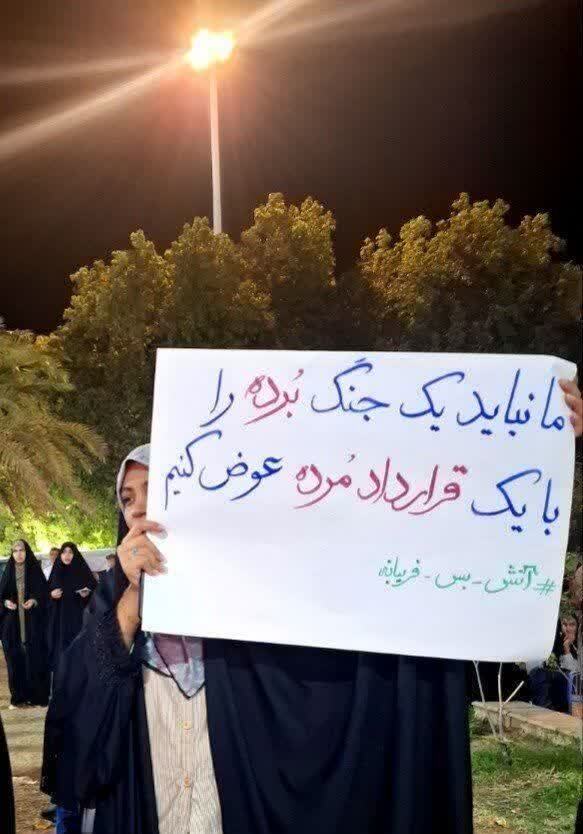 ما نباید یک جنگ بُرده را
با یک قرارداد مُرده عوض کنیم
#آتش_بس_فریبانه